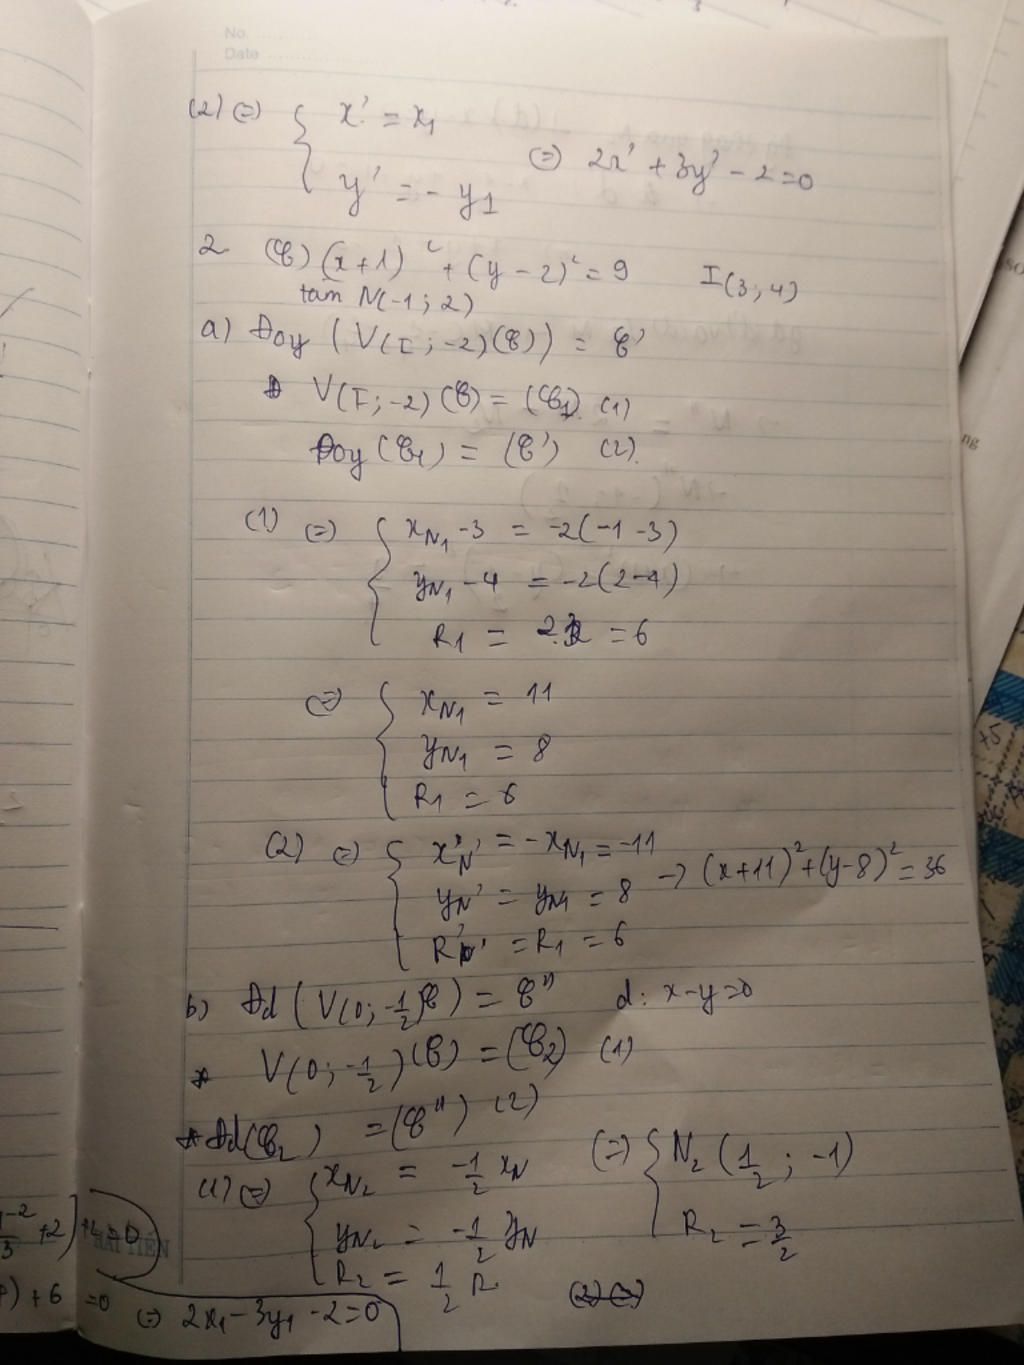 No. ............
Date ............
(2) (=) { x' = x₁
y' = - y1
(=) 2x' + 3y' - 2 = 0
2. (C) (x+1)² + (y-2)² = 9 I(3;4)
tâm N(-1; 2)
a) Đoy (V(I; -2)(C)) = C'
V(I; -2)(C) = (C₁). (1)
Đoy (C₁) = (C') (2).
(1) (=) { x_N₁ - 3 = -2(-1-3)
y_N₁ - 4 = -2(2-4)
R₁ = 2.3 = 6
(=) { x_N₁ = 11
y_N₁ = 8
R₁ = 6
(2) (=) { x_N' = -x_N₁ = -11
y_N' = y_N₁ = 8 → (x+11)² + (y-8)² = 36
R' = R₁ = 6
b) Đd (V(0; -1/2) C) = C'' d: x-y=0
* V(0; -1/2)(C) = (C₂) (1)
* Đd(C₂) = (C'') (2)
(1) (=) { x_N₂ = -1/2 x_N (=) { N₂ (1/2; -1)
y_N₂ = -1/2 y_N R₂ = 3/2
R₂ = 1/2 R.
+2) +2=0
HẢI TIẾN
) + 6 = 0 (=) 2x₁ - 3y₁ - 2 = 0